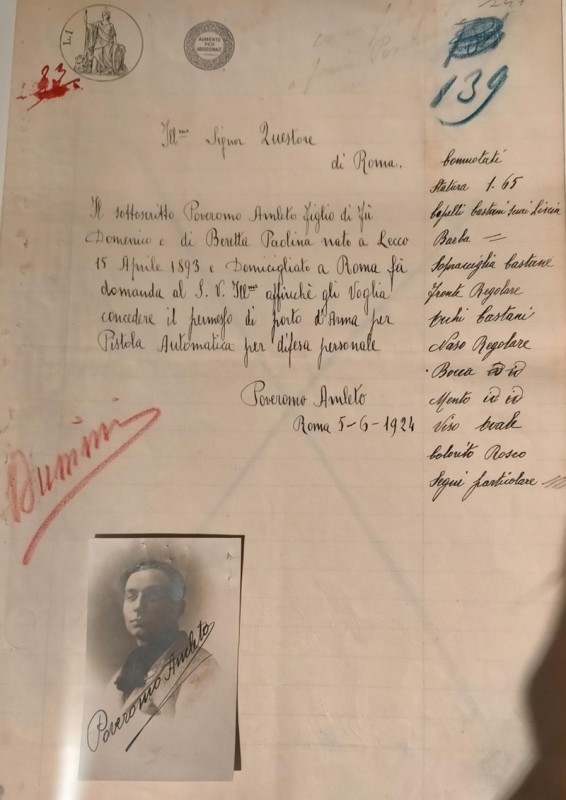 L. 1
AUMENTO PER ADDIZIONALE
33
139
Ill.mo Signor Questore
di Roma.
Il sottoscritto Poveromo Amleto figlio di fù
Domenico e di Beretta Paolina nato a Lecco
15 Aprile 1893 e Domicigliato a Roma fà
domanda al S. V. Ill.mo affinchè gli Voglia
concedere il permesso di porto d'Arma per
Pistola Automatica per difesa personale
Poveromo Amleto
Roma 5-6-1924
Connotati
Statura 1.65
Capelli Castani scuri Liscia
Barba =
Sopracciglia Castane
Fronte Regolare
Occhi Castani
Naso Regolare
Bocca id id
Mento id id
Viso Ovale
Colorito Roseo
Segni particolare
Dumini
Poveromo Amleto